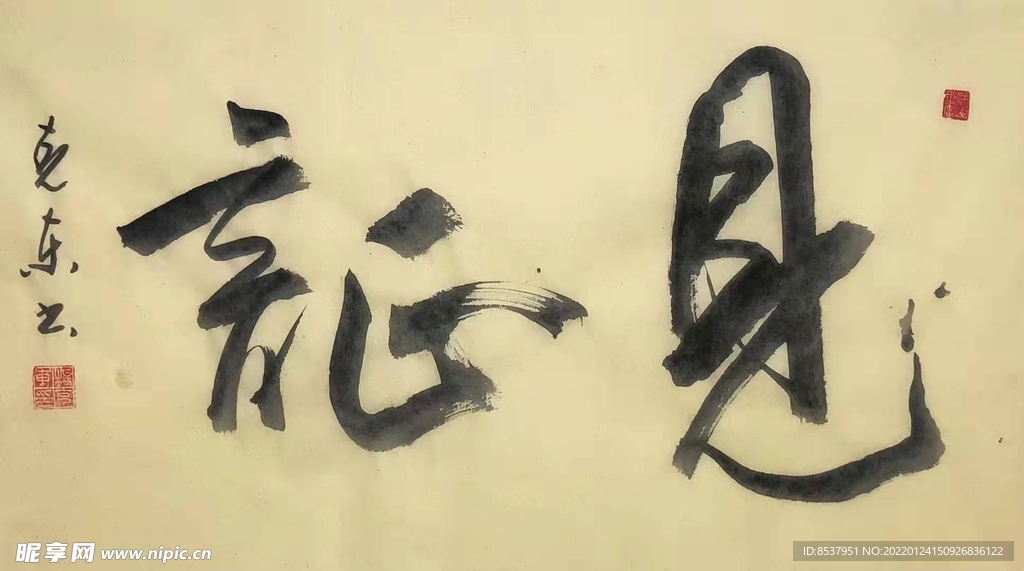 見証
克東书
昵享网 www.nipic.cn
ID:8537951 NO:20220124150926836122